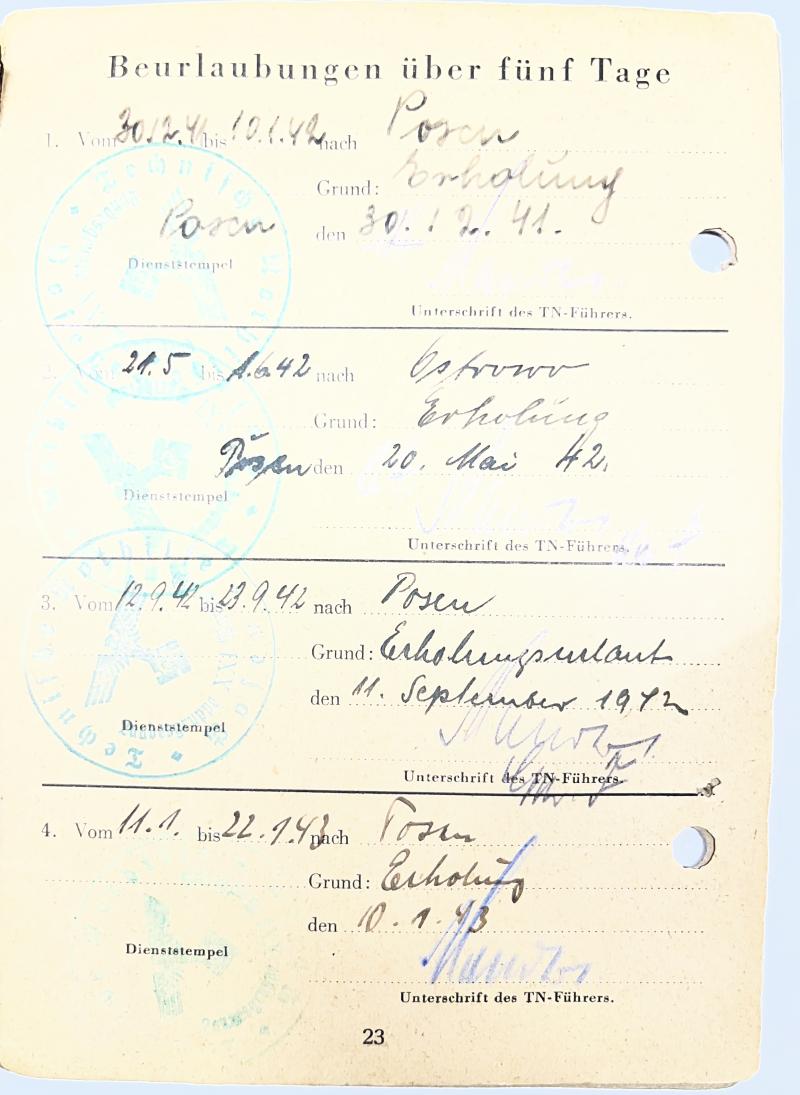 Beurlaubungen über fünf Tage
1. Vom 30.12.41 bis 10.1.42 nach Posen
Grund: Erholung
Posen den 30.12.41.
Dienststempel
Unterschrift des TN-Führers.
2. Vom 21.5 bis 1.6.42 nach Ostrowo
Grund: Erholung
Posen den 20. Mai 42.
Dienststempel
Unterschrift des TN-Führers.
3. Vom 12.9.42 bis 23.9.42 nach Posen
Grund: Erholungsurlaub
den 11. September 1942
Dienststempel
Unterschrift des TN-Führers.
4. Vom 11.1. bis 22.1.43 nach Posen
Grund: Erholung
den 10.1.43
Dienststempel
Unterschrift des TN-Führers.
23
Technische Nothilfe